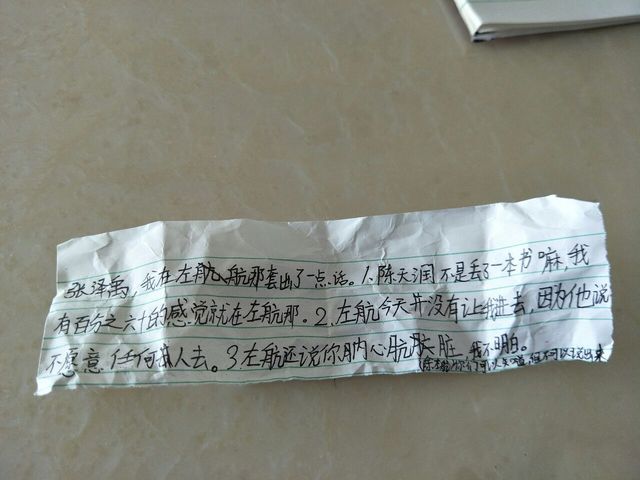 张泽禹，我在左航、航那套出了一点话。1.陈天润不是丢了一本书嘛，我
有百分之六十的感觉就在左航那。2.左航今天并没有让我进去，因为他说
不愿意任何其人去。3.左航还说你内心肮脏，我不明白。